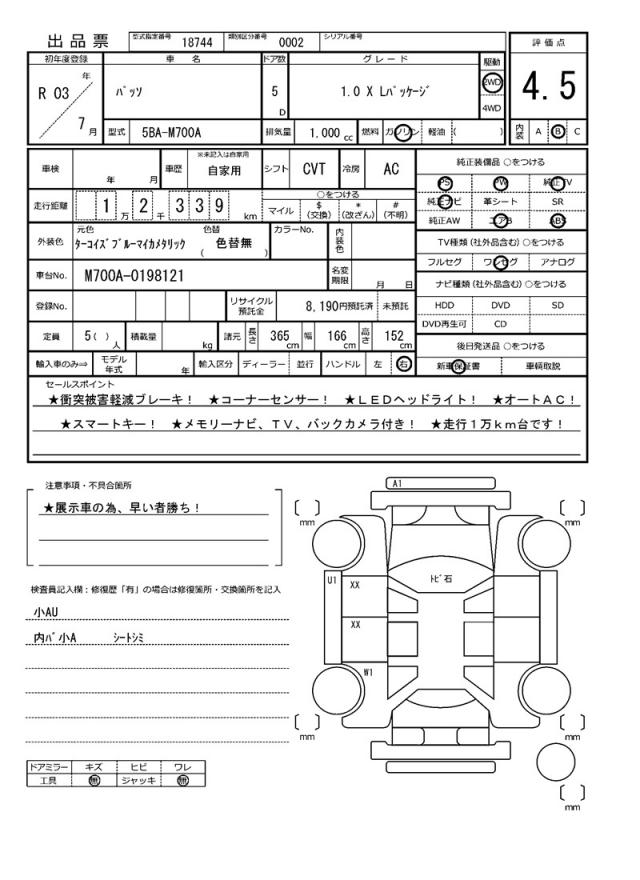 出品票 型式指定番号 18744 類別区分番号 0002 シリアル番号
評価点
初年度登録 車名 ドア数 グレード 駆動
R 03 年 パッソ 5 D 1.0 X Lパッケージ 2WD 4.5
4WD
7 月 型式 5BA-M700A 排気量 1,000 cc 燃料 ガソリン 軽油 ( ) 内装 A B C
車検 年 月 車歴 ※未記入は自家用 自家用 シフト CVT 冷房 AC
純正装備品 ○をつける
PS PW 純正TV
走行距離 1 万 2 千 3 3 9 km ○をつける
マイル $ (交換) * (改ざん) # (不明)
純正ナビ 革シート SR
純正AW エアB ABS
外装色 元色 ターコイズブルーマイカメタリック 色替 ( 色替無 ) カラーNo. 内装色
TV種類(社外品含む) ○をつける
フルセグ ワンセグ アナログ
車台No. M700A-0198121 名変期限 月 日
ナビ種類(社外品含む) ○をつける
登録No. リサイクル預託金 8,190円預託済 未預託
HDD DVD SD
DVD再生可 CD
定員 5( ) 人 積載量 kg 諸元 長さ 365 cm 幅 166 cm 高さ 152 cm
後日発送品 ○をつける
輸入車のみ⇨ モデル年式 年 輸入区分 ディーラー 並行 ハンドル 左 右
新車保証書 車輌取説
セールスポイント
★衝突被害軽減ブレーキ! ★コーナーセンサー! ★LEDヘッドライト! ★オートAC!
★スマートキー! ★メモリーナビ、TV、バックカメラ付き! ★走行1万km台です!
注意事項・不具合箇所
★展示車の為、早い者勝ち!
検査員記入欄:修復歴「有」の場合は修復箇所・交換箇所を記入
小AU
内バ小A シートシミ
ドアミラー キズ ヒビ ワレ
工具 無 ジャッキ 無
A1
mm mm
トビ石
U1 XX
XX
W1
mm mm
mm